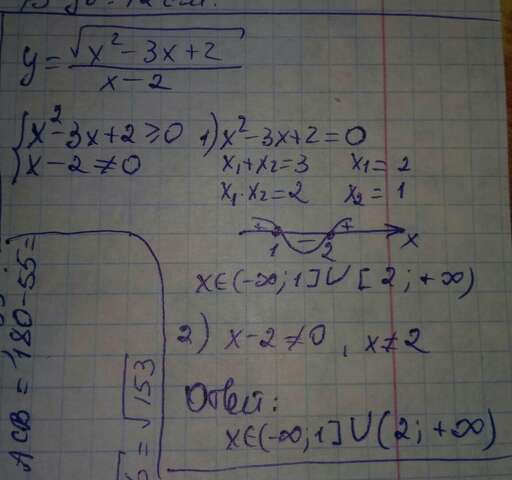 y = √(x² - 3x + 2) / (x - 2)
{ x² - 3x + 2 ≥ 0
x - 2 ≠ 0
1) x² - 3x + 2 = 0
x₁ + x₂ = 3 x₁ = 2
x₁ · x₂ = 2 x₂ = 1
+ - +
1 2 x
x ∈ (-∞; 1] ∪ [2; +∞)
2) x - 2 ≠ 0, x ≠ 2
Ответ:
x ∈ (-∞; 1] ∪ (2; +∞)
ACB = 180 - 55 =
= √153